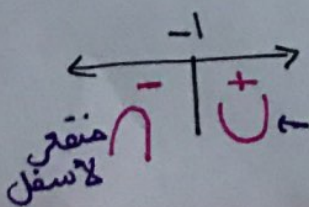 -1
- +
منقعر
لأسفل